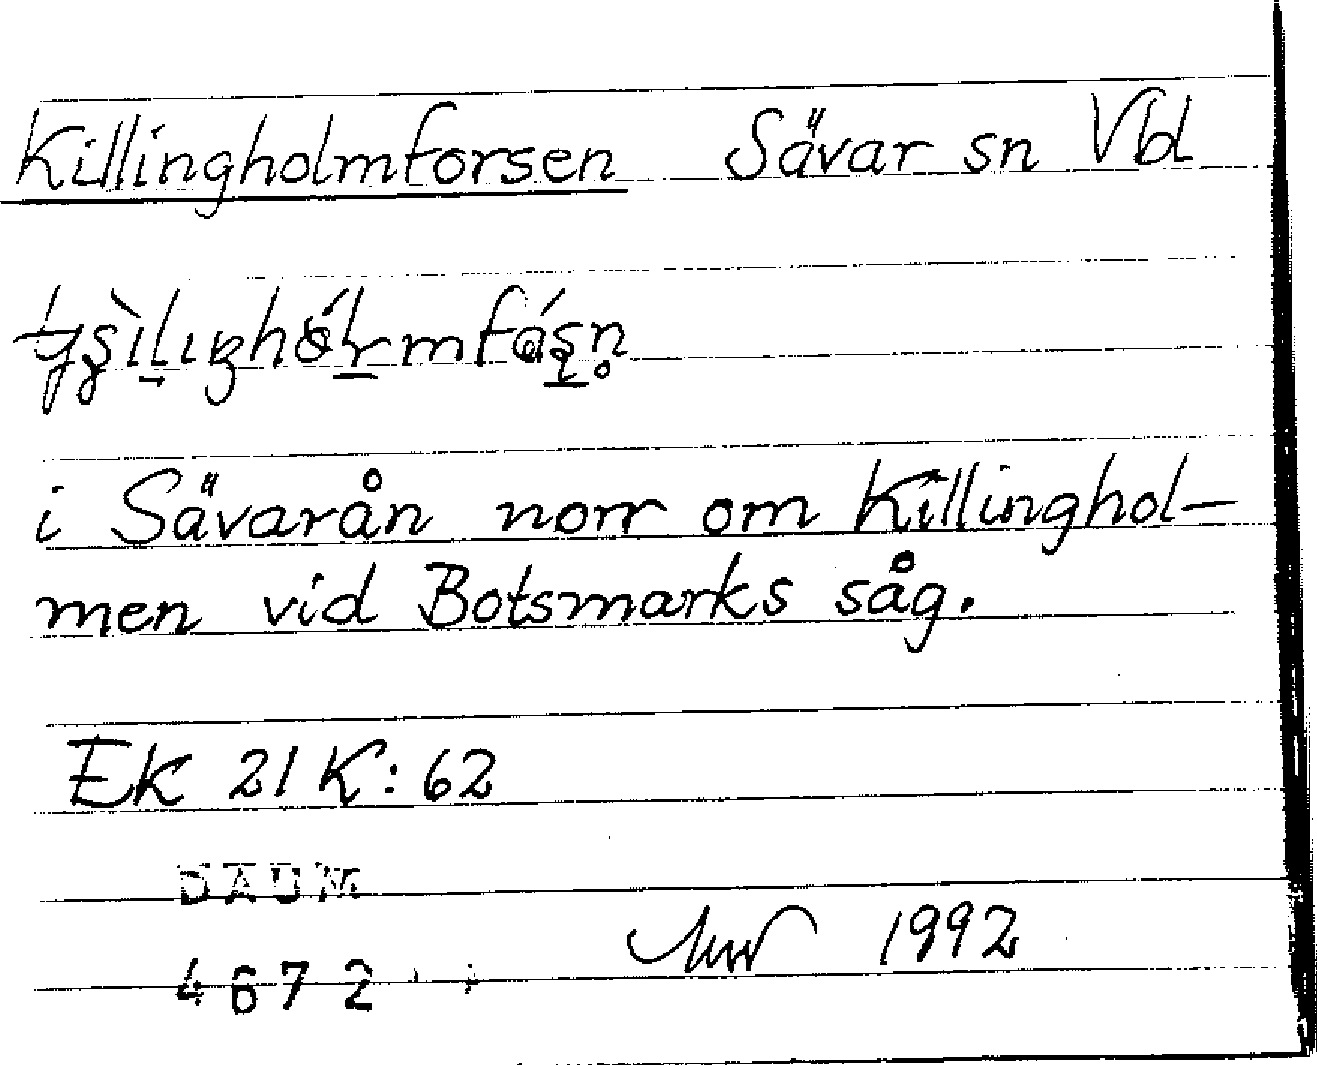 Killingholmforsen Sävar sn Vbl
i Sävarån norr om Killinghol-
men vid Botsmarks såg.
Ek 21 K: 62
DAUM
4672
1992